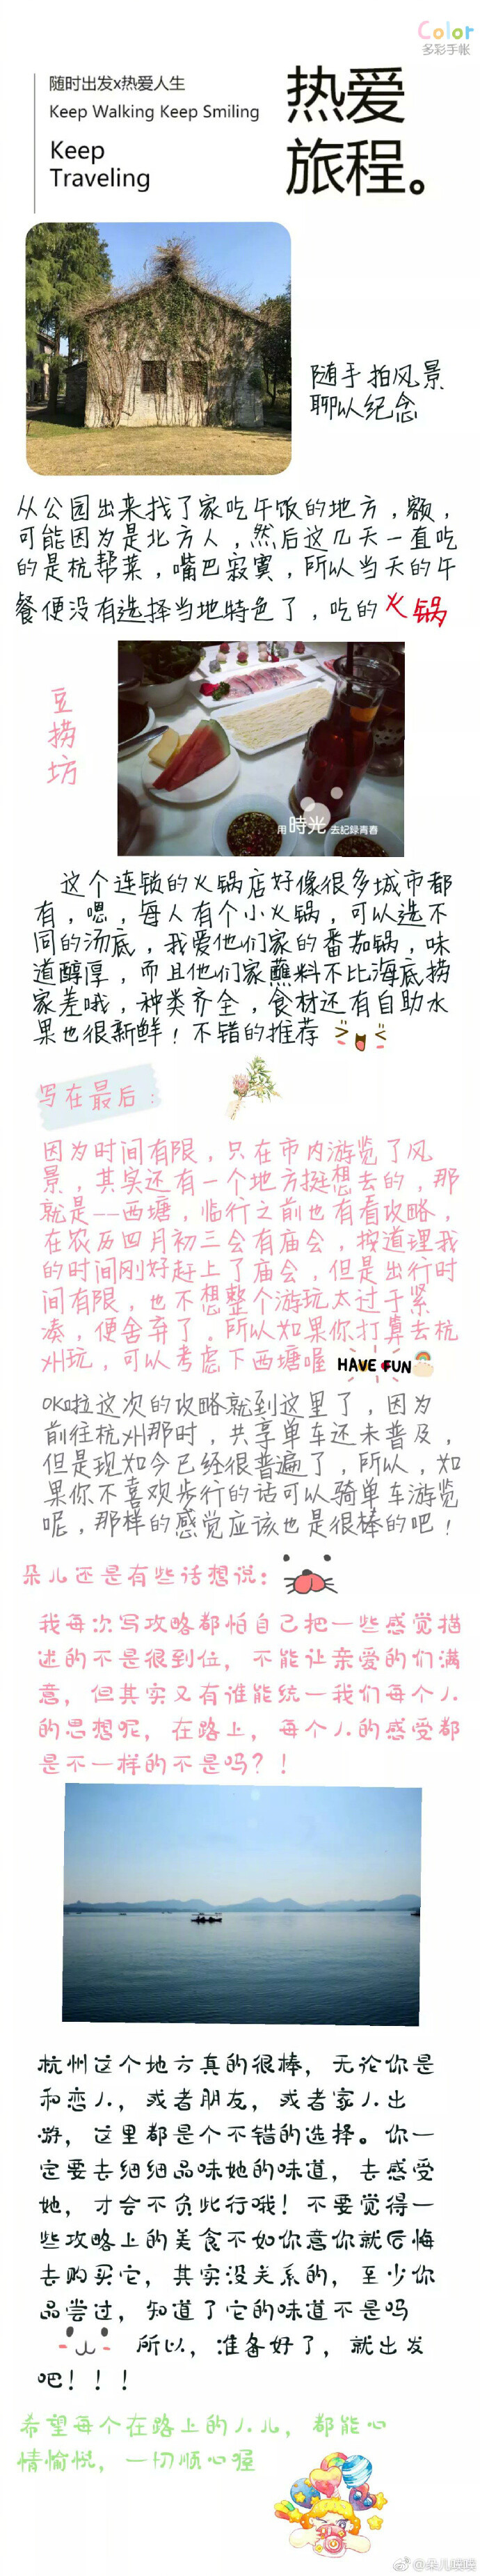 Color
多彩手帐
随时出发x热爱人生
Keep Walking Keep Smiling
Keep
Traveling
热爱
旅程。
随手拍风景
聊以纪念
从公园出来找了家吃午饭的地方，额，
可能因为是北方人，然后这几天一直吃
的是杭帮菜，嘴巴寂寞，所以当天的午
餐便没有选择当地特色了，吃的火锅
豆捞坊
用時光去記録青春
这个连锁的火锅店好像很多城市都
有，嗯，每人有个小火锅，可以选不
同的汤底，我爱他们家的番茄锅，味
道醇厚，而且他们家蘸料不比海底捞
家差哦，种类齐全，食材还有自助水
果也很新鲜！不错的推荐
写在最后：
因为时间有限，只在市内游览了风
景，其实还有一个地方挺想去的，那
就是——西塘，临行之前也有看攻略，
在农历四月初三会有庙会，按道理我
的时间刚好赶上了庙会，但是出行时
间有限，也不想整个游玩太过于紧
凑，便舍弃了。所以如果你打算去杭
州玩，可以考虑下西塘喔 HAVE FUN
OK啦这次的攻略就到这里了，因为
前往杭州那时，共享单车还未普及，
但是现如今已经很普遍了，所以，如
果你不喜欢步行的话可以骑单车游览
呢，那样的感觉应该也是很棒的吧！
朵儿还是有些话想说：
我每次写攻略都怕自己把一些感觉描
述的不是很到位，不能让亲爱的们满
意，但其实又有谁能统一我们每个人
的思想呢，在路上，每个人的感受都
是不一样的不是吗？！
杭州这个地方真的很棒，无论你是
和恋人，或者朋友，或者家人出
游，这里都是个不错的选择。你一
定要去细细品味她的味道，去感受
她，才会不负此行哦！不要觉得一
些攻略上的美食不如你意你就后悔
去购买它，其实没关系的，至少你
品尝过，知道了它的味道不是吗
所以，准备好了，就出发
吧！！！
希望每个在路上的人儿，都能心
情愉悦，一切顺心喔
@朵儿暖暖